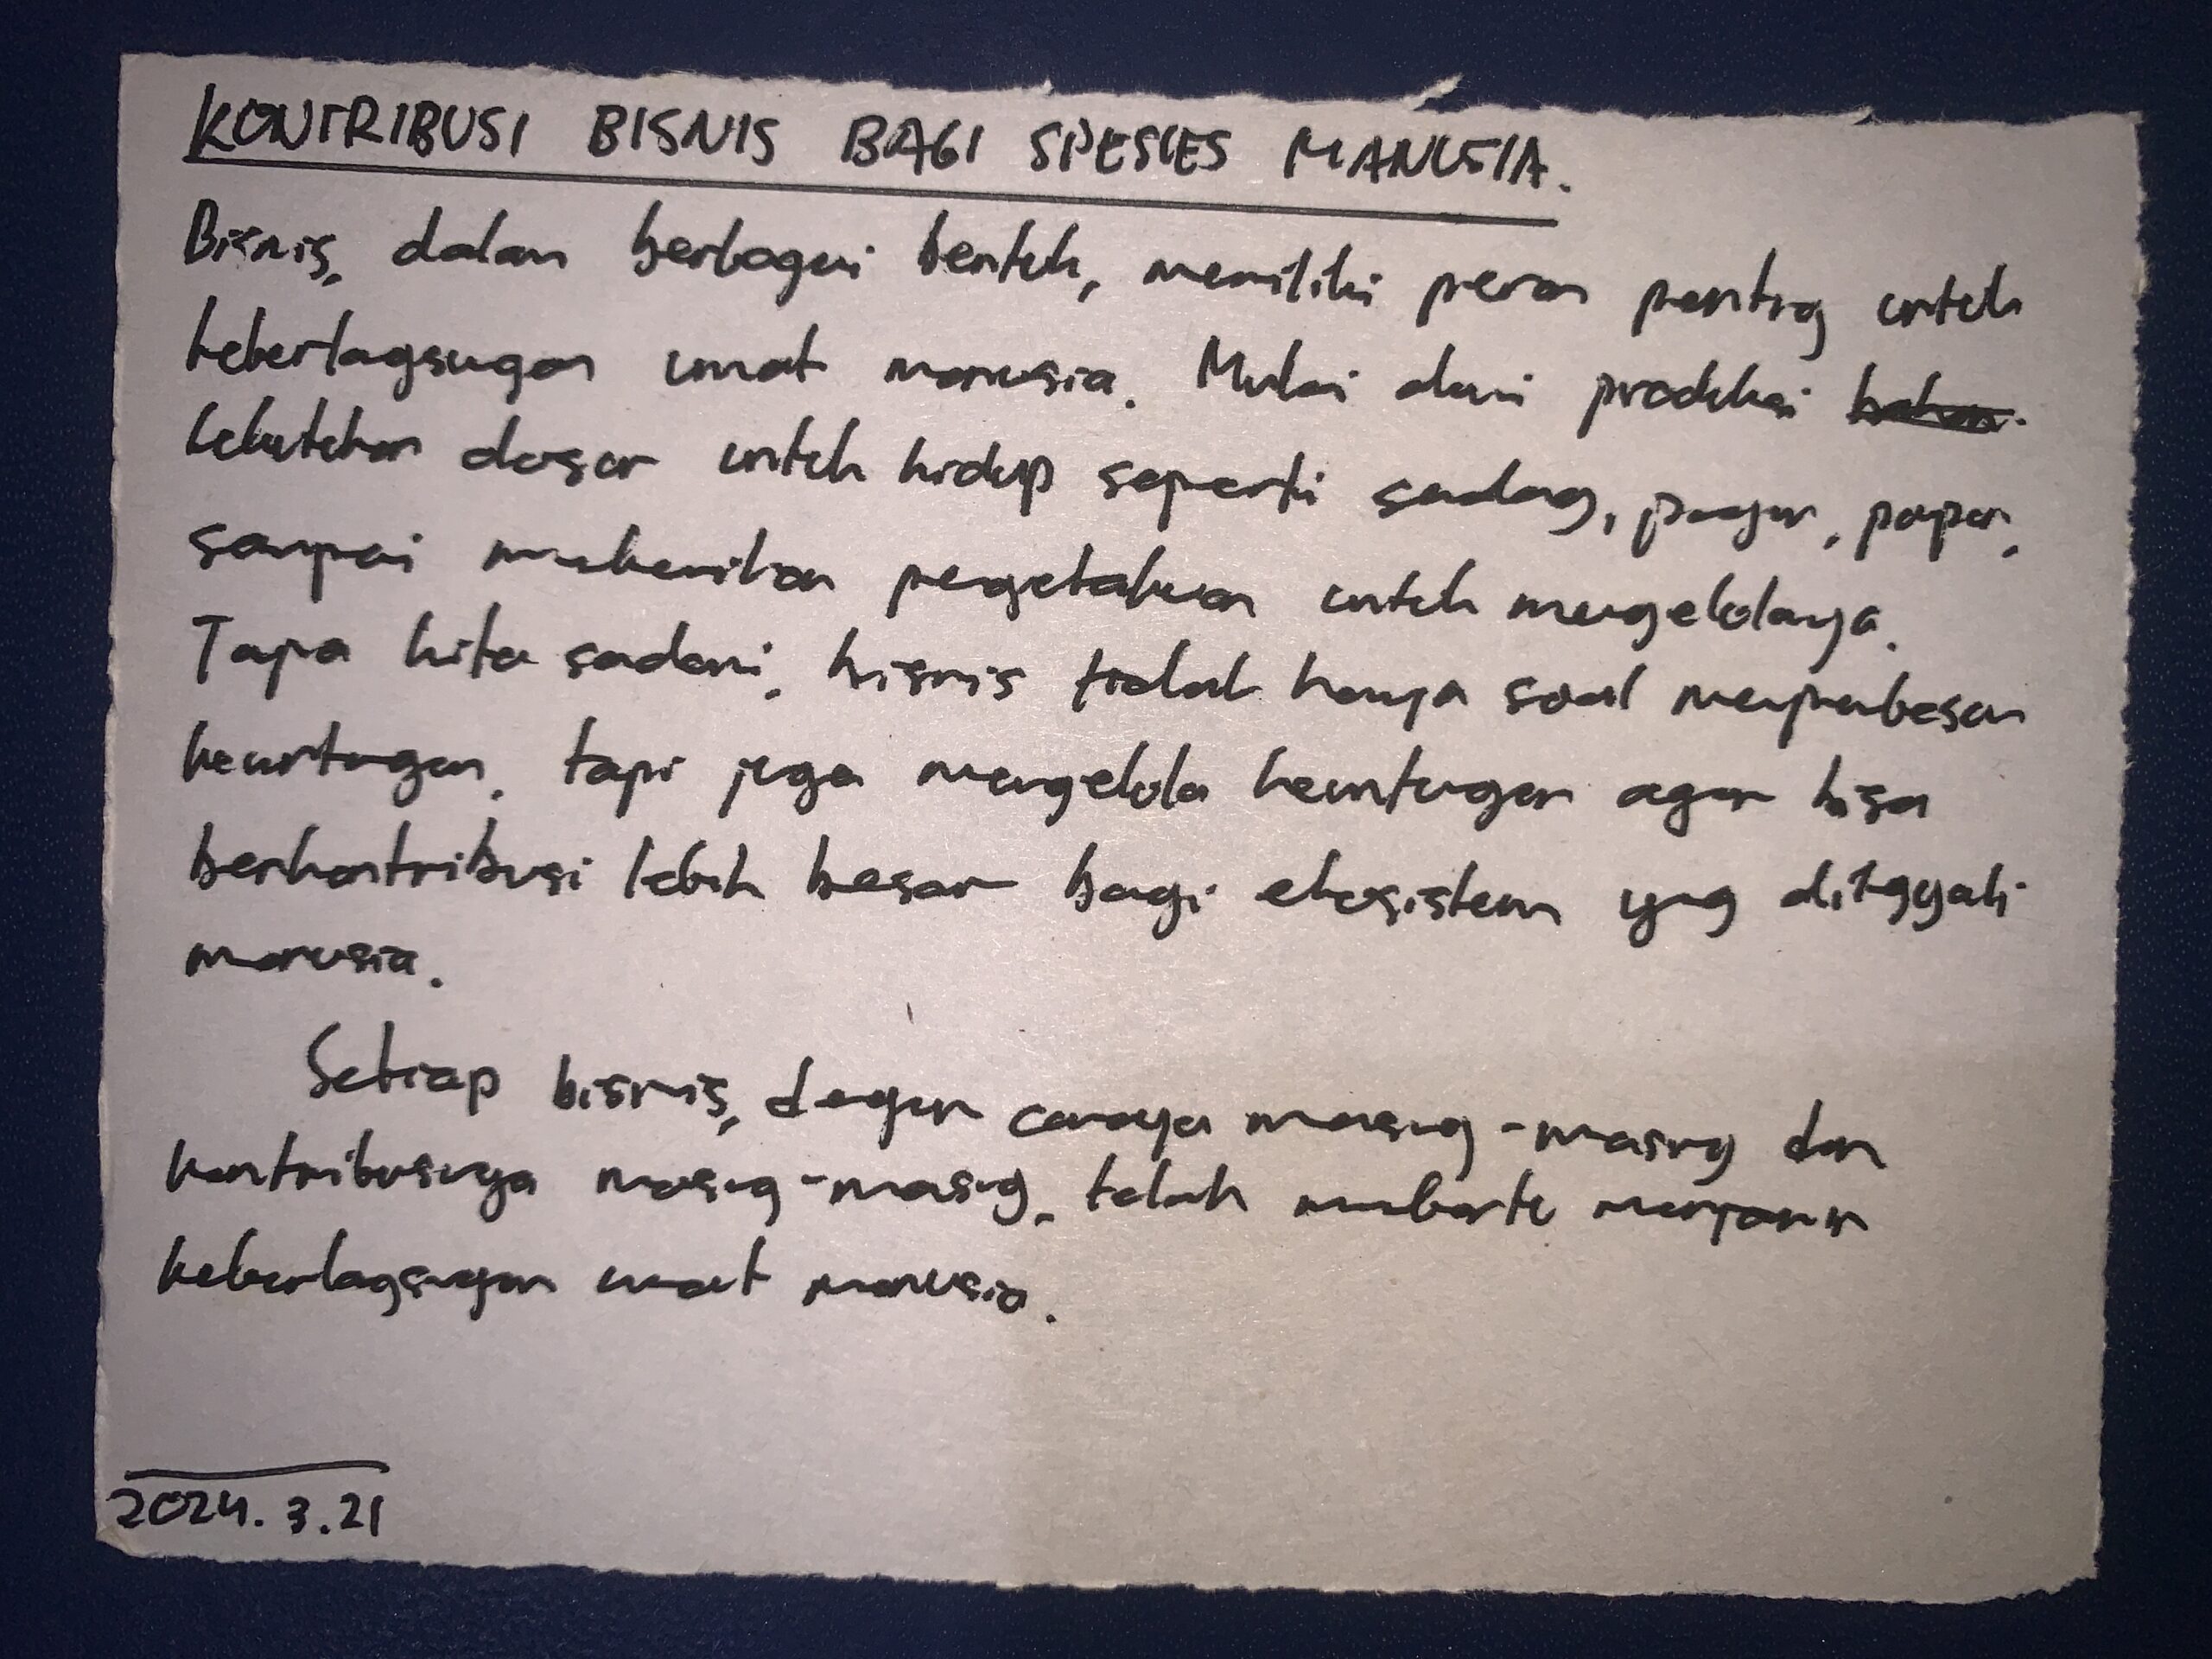 KONTRIBUSI BISNIS BAGI SPESIES MANUSIA.
Bisnis, dalam berbagai bentuk, memiliki peran penting untuk
keberlangsungan umat manusia. Mulai dari produksi bahan
kebutuhan dasar untuk hidup seperti sandang, pangan, papan,
sampai memberikan pengetahuan untuk mengelolanya.
Tanpa kita sadari, bisnis tidak hanya soal memperbesar
keuntungan, tapi juga mengelola keuntungan agar bisa
berkontribusi lebih besar bagi ekosistem yang ditinggali
manusia.
Setiap bisnis, dengan caranya masing-masing dan
kontribusinya masing-masing, telah membantu menjamin
keberlangsungan umat manusia.
2024.3.21